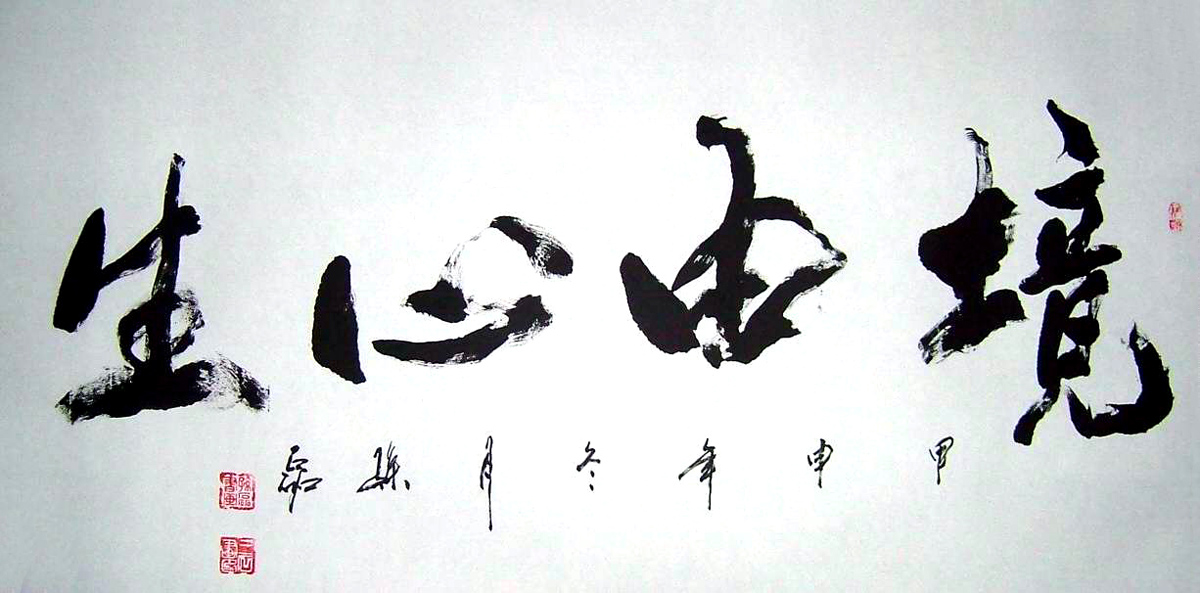 境由心生
甲申年冬月孫磊